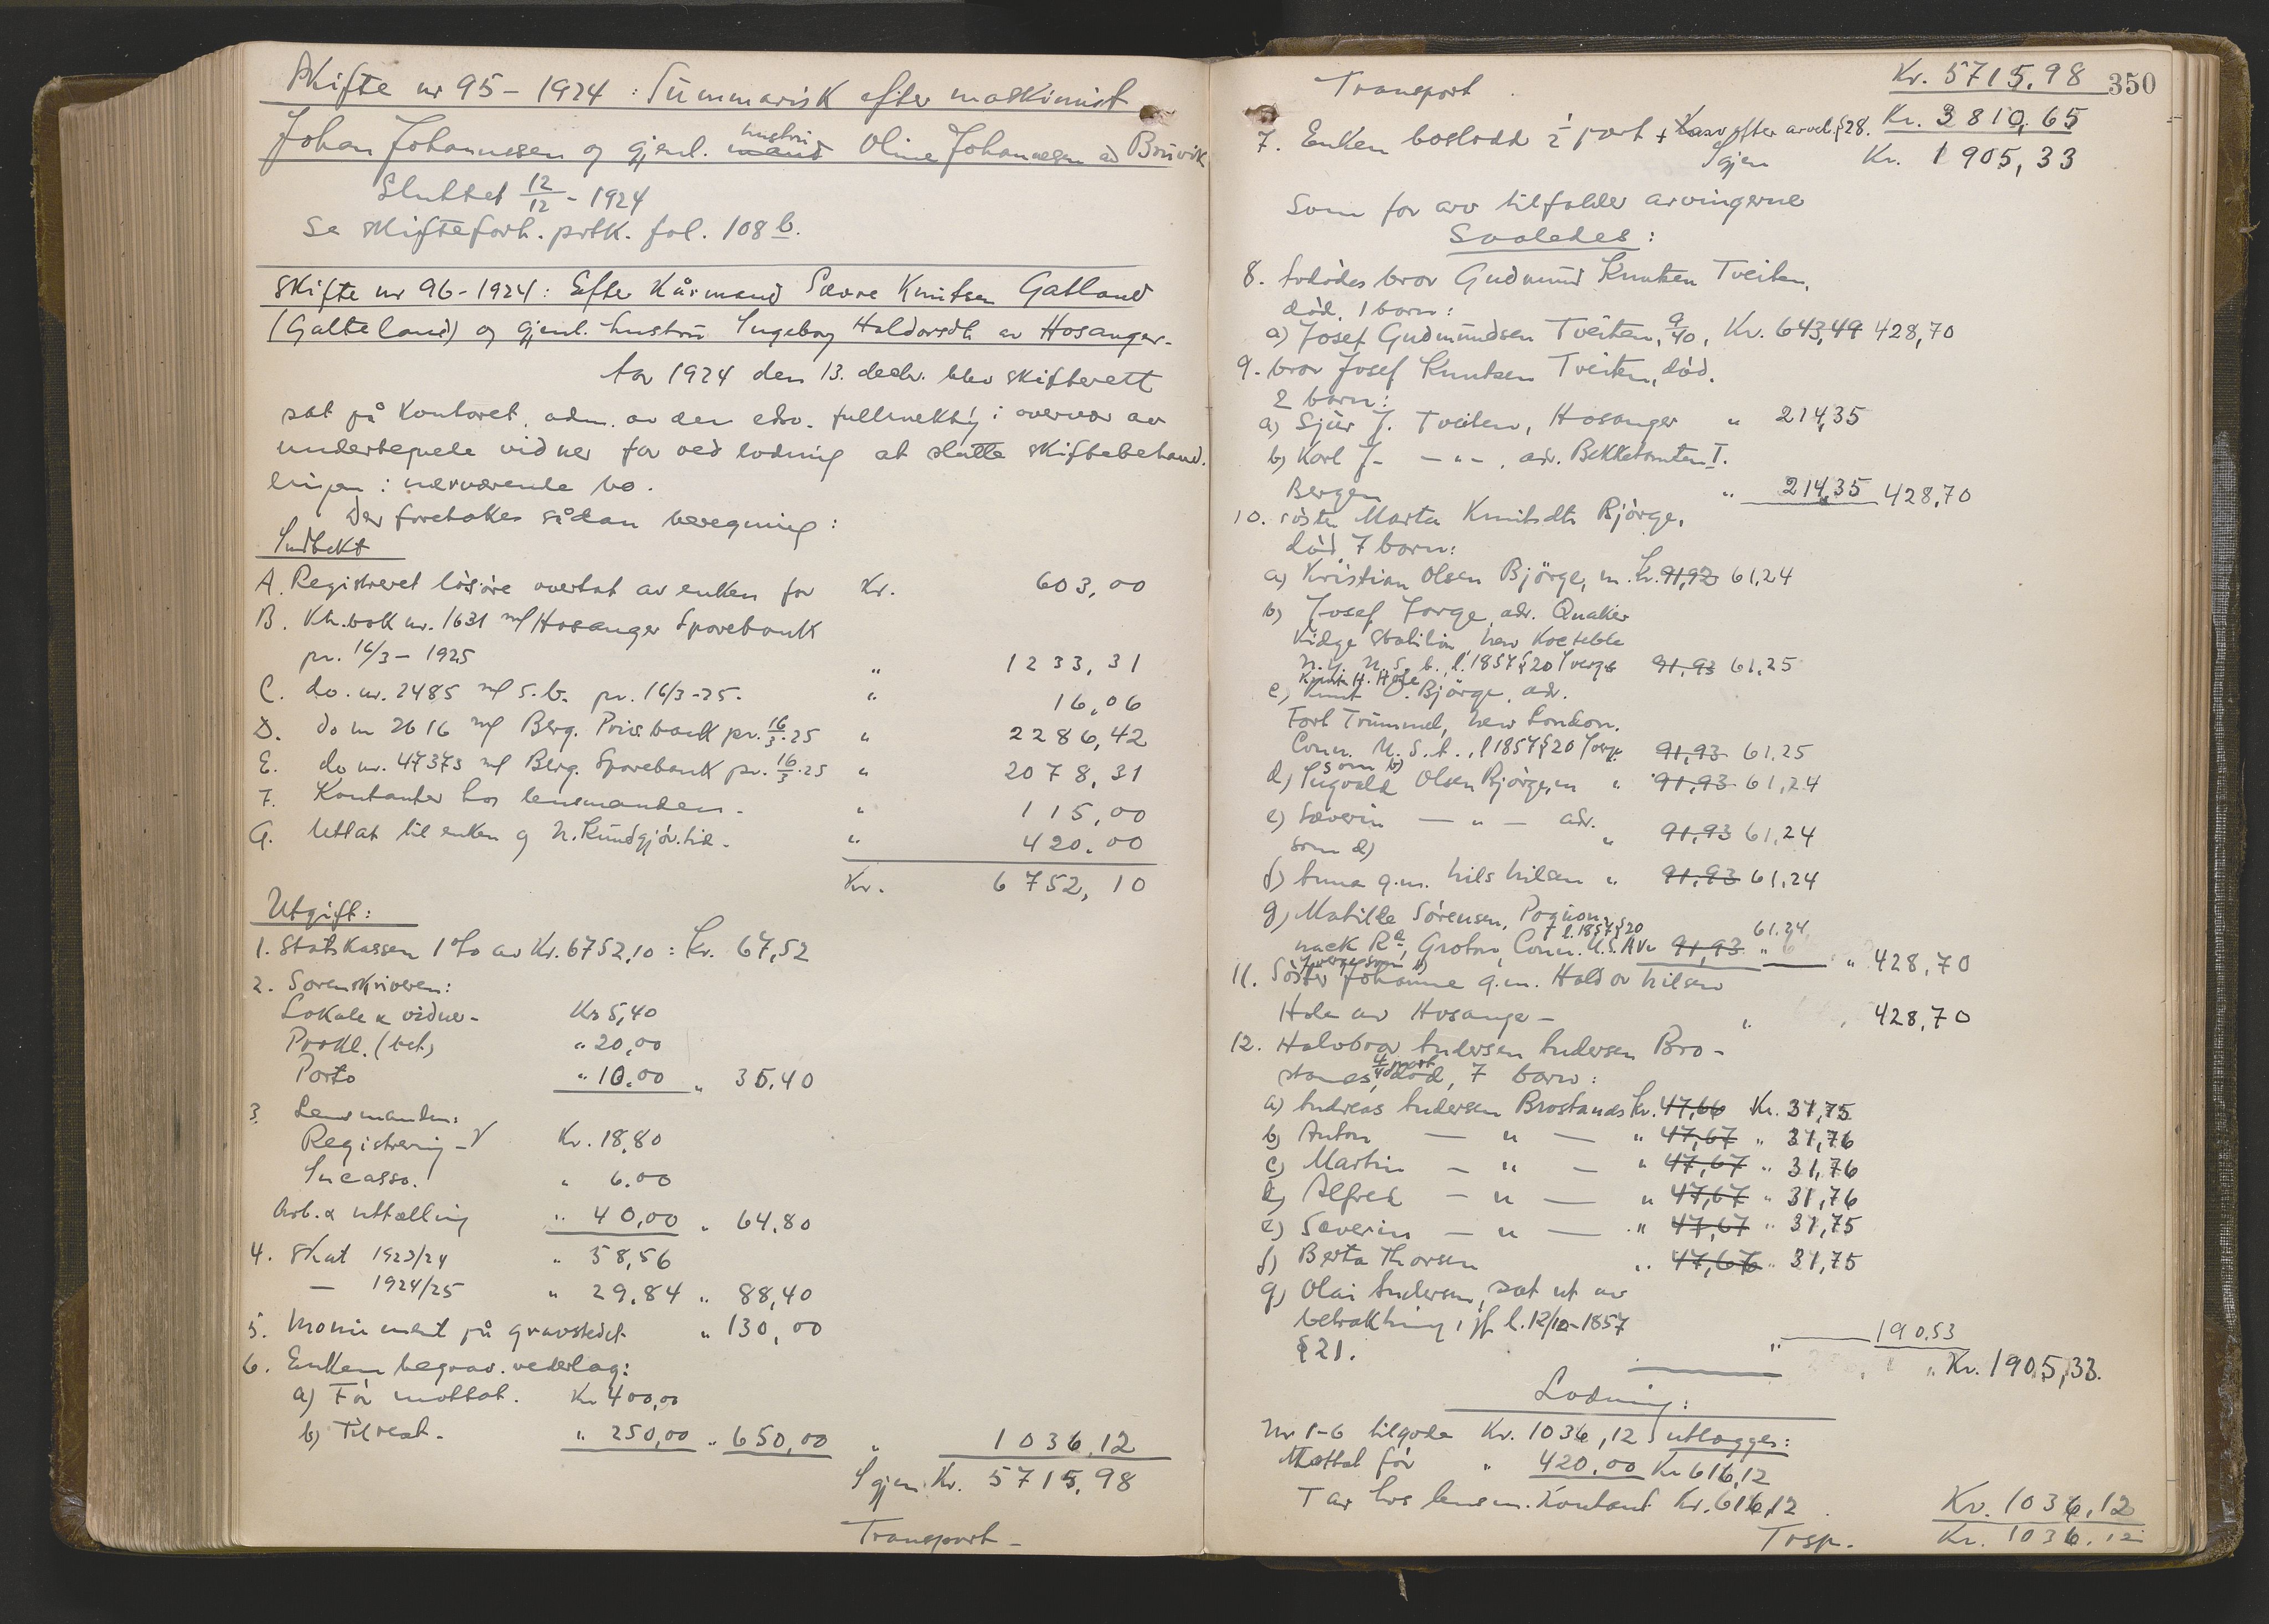 Skifte nr 95 - 1924 : Summarisk efter maskinist
Johan Johannessen og gjenl. hustru Oline Johannesen av Bruvik
Sluttet 12/12 - 1924
Se skifteforh. prtk. fol. 108 b.
Skifte nr 96 - 1924 : Efter Kårmand Sevre Knutsen Galland
(Galteland) og gjenl. hustru Ingeborg Haldorsdt. av Hosanger.
År 1924 den 13. decbr. blev skifterett
sat på kontoret, adm. av den edsv. fullmektig i overvær av
undertegnede vidner for ved lodning at slutte skiftebehand-
lingen i nærværende bo.
Der foretokes sådan beregning :
Indtekt
A. Registreret lösöre overtat av enken for Kr. 603,00
B. Ktr.bok nr. 1631 m/ Hosanger Sparebank
pr. 16/3 - 1925 " 1233,31
C. do. nr. 2485 m/ s.b. pr. 16/3-25. " 16,06
D. do nr 2616 m/ Berg. Privatbank pr. 16/3.25 " 2286,42
E. do nr. 47373 m/ Berg. Sparebank pr. 16/3.25 " 2078,31
F. Kontanter hos lensmanden. " 115,00
G. Utlat til enken og N. Kundgjör. tid. " 420.00
Kr. 6752,10
Utgift:
1. Statskassen 1% av Kr. 6752,10 : Kr. 67,52
2. Sorenskriveren:
Lokale & vidner - Kr 5,40
Prokl. (bet) " 20,00
Porto " 10.00 " 35,40
3. Lensmanden:
Registrering - Kr. 18,80
Incasso. " 6.00
Arb. & uttælling " 40,00 " 64,80
4. Skat 1923/24 " 58,56
— 1924/25 " 29,84 " 88,40
5. Monument på gravstedet " 130,00
6. Enken begrav. vederlag:
a) Før mottat. Kr 400,00
b) Til rest. " 250,00 " 650,00 " 1036,12
Igjen Kr. 5715,98
Transport -
350
Transport Kr. 5715,98
7. Enken boslodd ½ part + ⅓ arv efter arvel. §28. Kr. 3810,65
Igjen Kr. 1905,33
Som for arv tilfalder arvingerne
Saaledes :
8. Avdödes bror Gudmund Knutsen Tveiten,
död, 1 barn :
a) Josef Gudmundsen Tveiten, 9/40, Kr. 643,49 428,70
9. bror Josef Knutsen Tveiten, död.
2 barn :
a) Sjur J. Tveiten, Hosanger " 214,35
b) Karl J- — " — , adr. Bekketomten I.
Bergen " 214,35 428,70
10. söster Marta Knutsdtr Björge,
död, 7 barn :
a) Kristian Olsen Björge, m. Kr. 91,92 61,24
b) Josef Jorge, adr. Quaker
Ridge Station
N.Y. U.S.A., l. 1857 §20 91,93 61,25
c) Knut O. Björge, adr.
Fort Trummel, New London.
Conn. U.S.A., l 1857 §20 91,93 61,25
som b)
d) Ingvald Olsen Björge, m " 91,93 61,24
e) Severin — " — adr.
som d) " 91,93 61,24
f) Anna g.m. Nils Nilsen " 91,93 61,24
g) Matilde Sörensen,
l. 1857 §20 61.24
Groton, Conn. U.S.A. 91,93 " 428,70
11. Söster Johanne g.m. Haldor Nilsen
Hole av Hosanger - " 428,70
12. Halvbror Andersen Andersen Bro-
stanes, död, 7 barn :
a) Andreas Andersen Brostanes Kr. 47,66 Kr. 31,75
b) Anton — " — " 47,67 " 31,76
c) Martin — " — " 47,67 " 31,76
d) Alfred — " — " 47,67 " 31,76
e) Severin — " — " 47,67 " 31,75
f) Berta Thorsen " 47,67 " 31,75
g) Olai Andersen, sat ut av
betraktning, jf l. 12/10-1857
§ 21. " 190,53
" Kr. 1905,33.
Lodning :
Nr 1-6 tilgode Kr. 1036,12 utlægges :
Mottat för " 420.00 Kr 616,12
Tar hos lensm. Kontant Kr. 616,12 Kr. 1036,12
Trsp. Kr. 1036.12